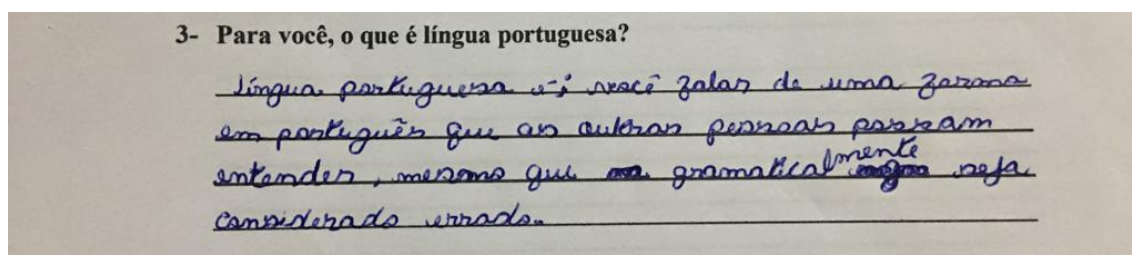 3- Para você, o que é língua portuguesa?
língua portuguesa é você falar de uma forma
em português que as outras pessoas possam
entender, mesmo que gramaticalmente seja
considerado errado.